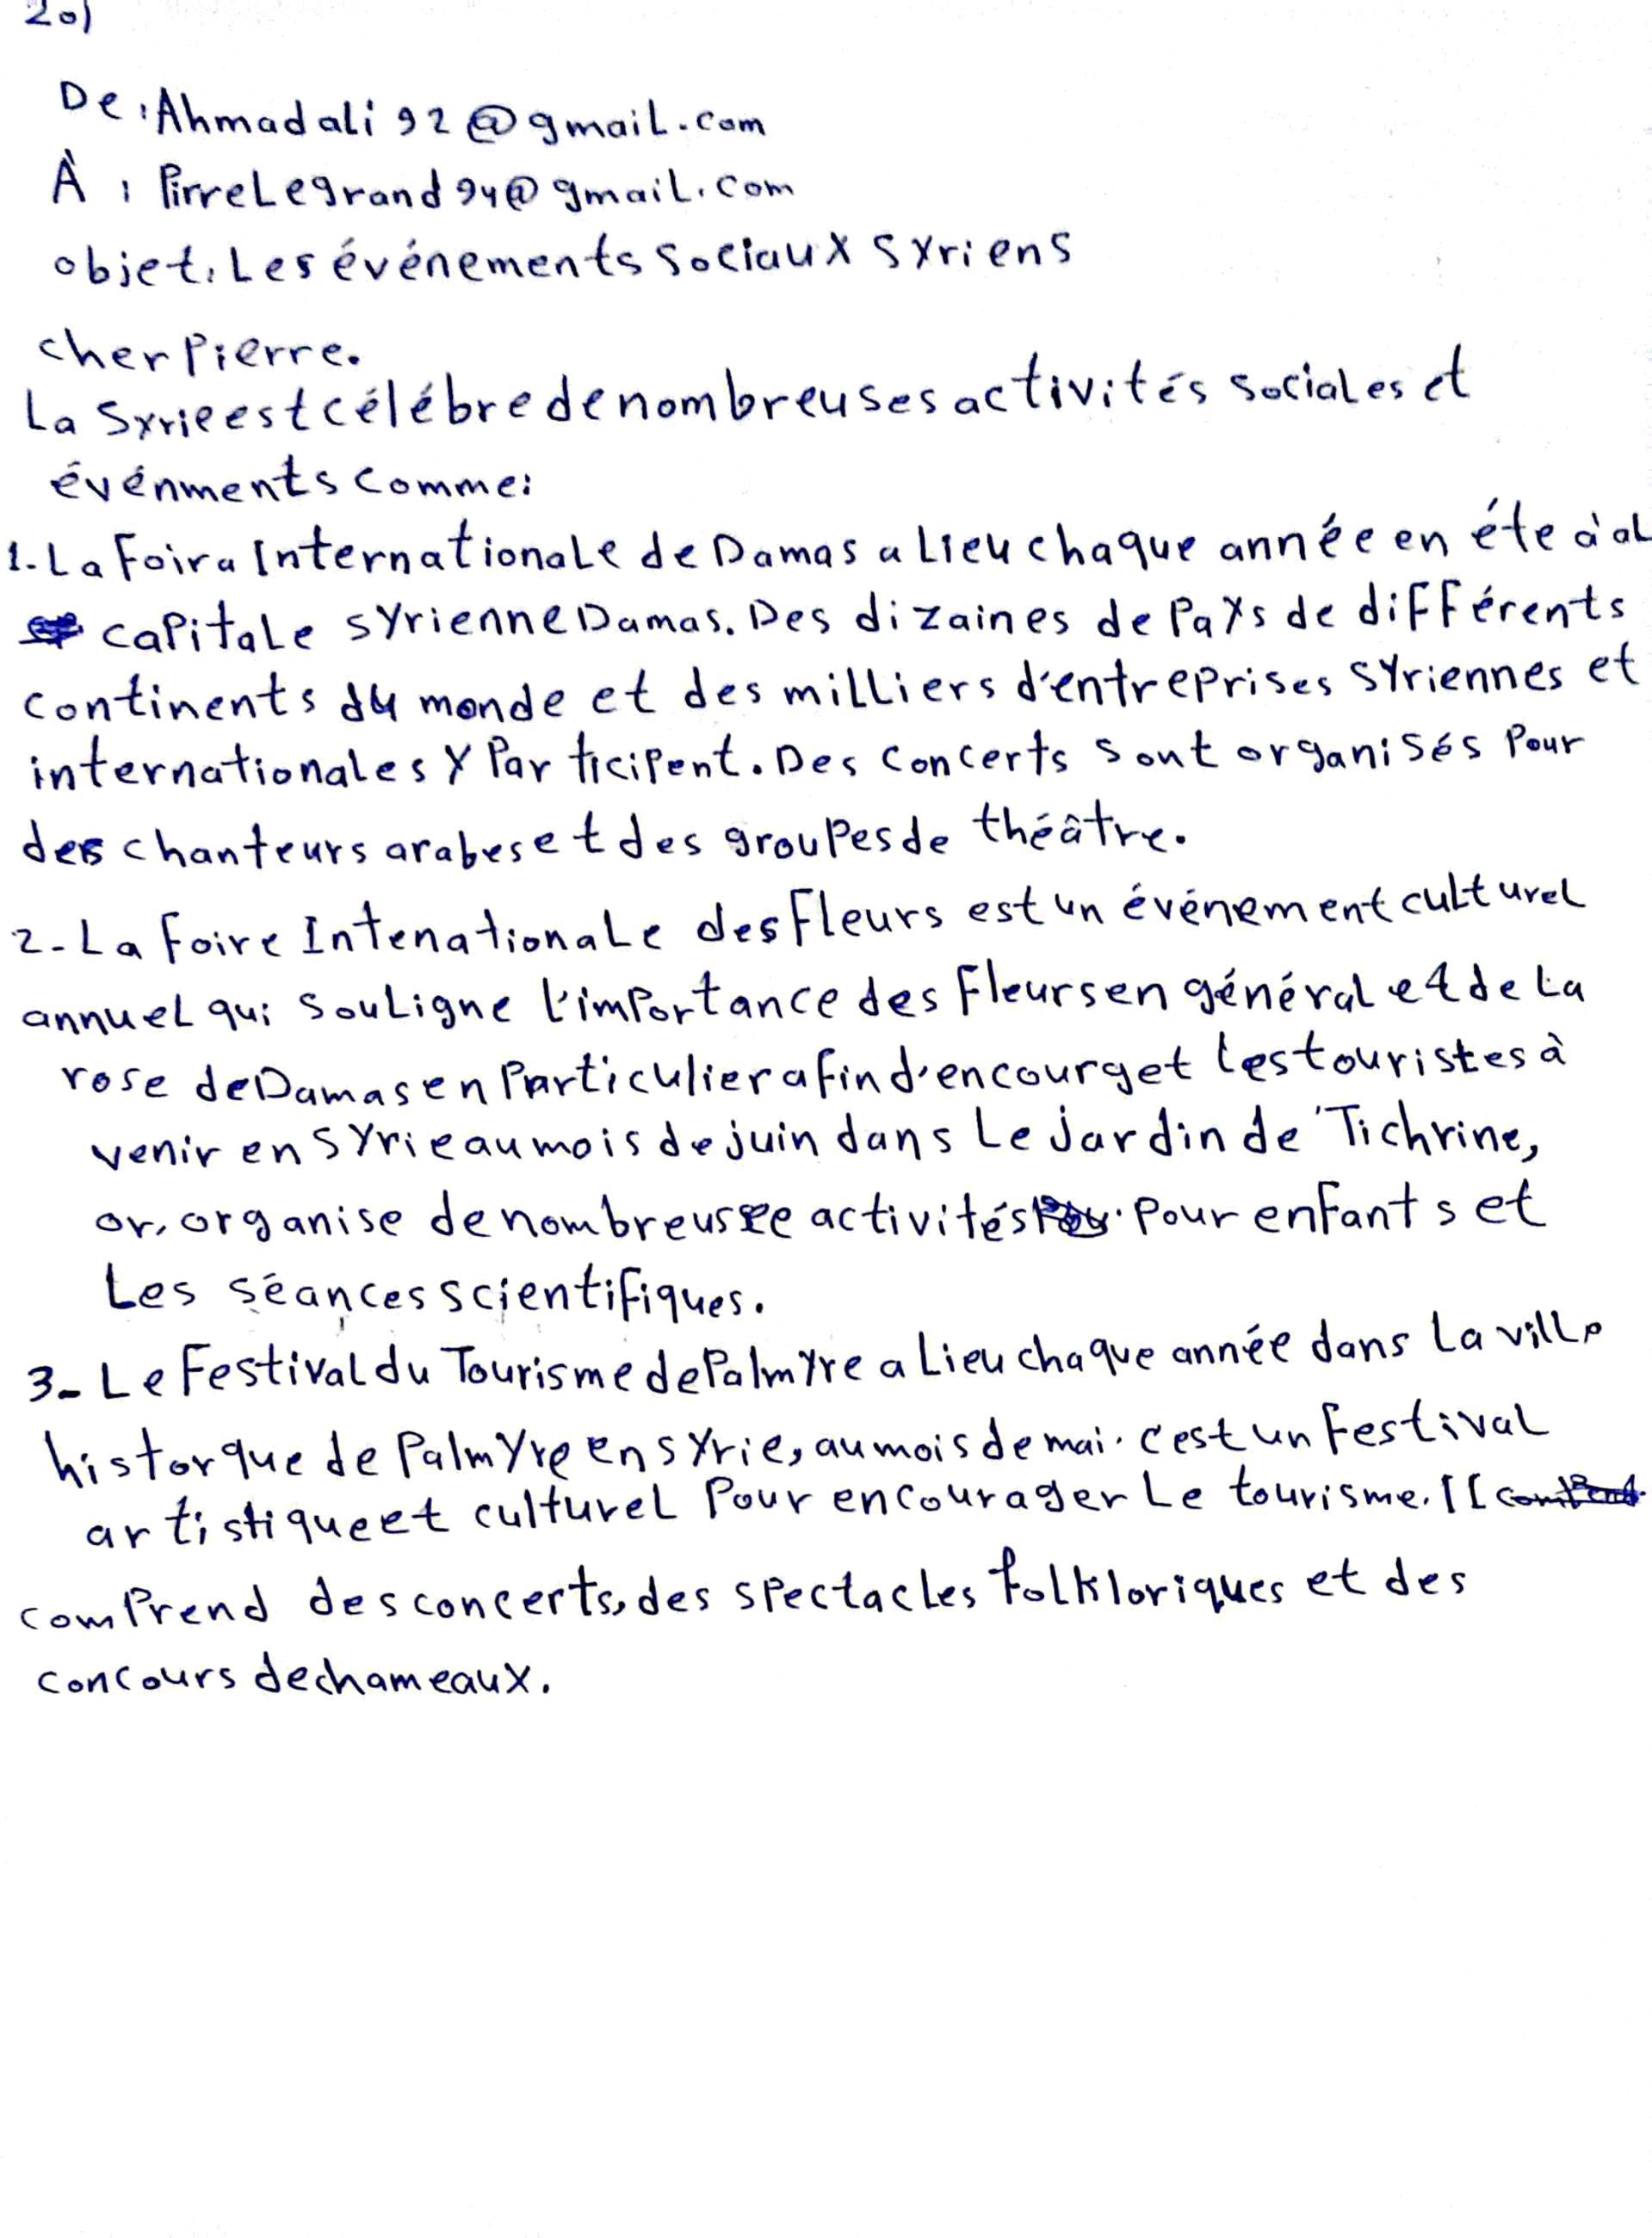 20)
De: Ahmadali92@gmail.com
À : PirreLegrand94@gmail.com
objet: Les événements sociaux syriens
cher Pierre.
La Syrie est célébre de nombreuses activités sociales et
événments comme:
1. La Foira Internationale de Damas a lieu chaque année en éte à al
capitale syrienne Damas. Des dizaines de Pays de différents
continents du monde et des milliers d'entreprises syriennes et
internationales y Participent. Des concerts sont organisés Pour
des chanteurs arabes et des groupes de théâtre.
2- La foire Intenationale des Fleurs est un événement culturel
annuel qui souligne l'importance des Fleurs en général et de la
rose de Damas en Particulier afin d'encourget les touristes à
venir en Syrie au mois de juin dans le jardin de Tichrine,
or, organise de nombreusee activités pour enfants et
Les séances scientifiques.
3- Le Festival du Tourisme de Palmyre a lieu chaque année dans la ville
historque de Palmyre en syrie, au mois de mai. c'est un Festival
artistique et culturel Pour encourager le tourisme. Il
comprend des concerts, des spectacles folkloriques et des
concours de chameaux.